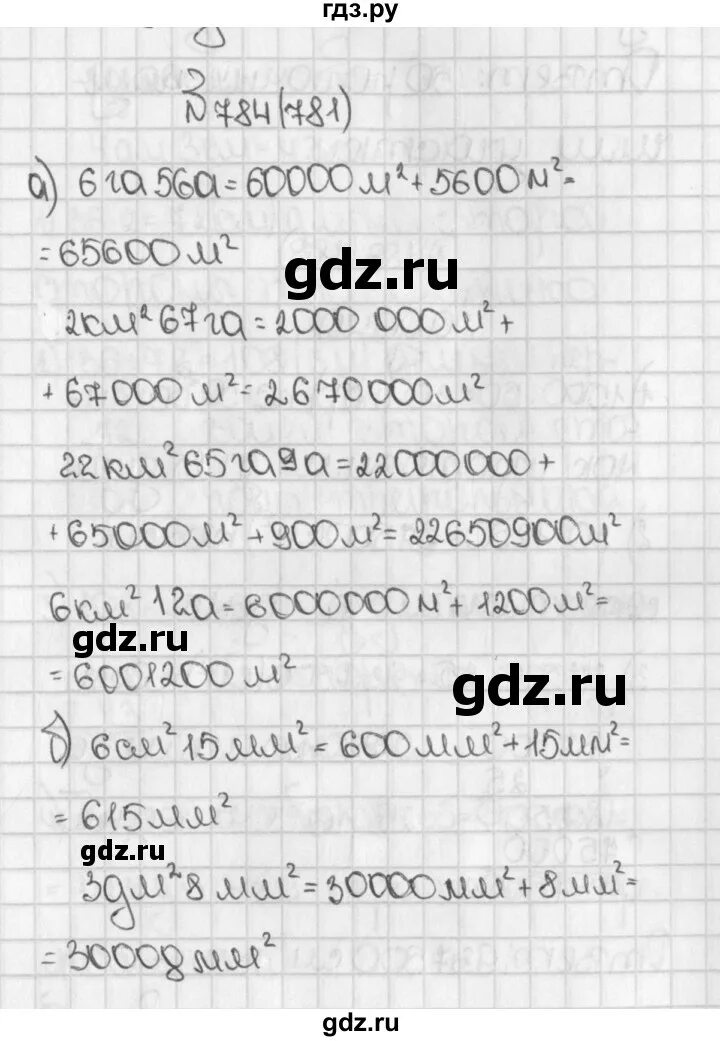 гдз.ру
№784(781)
а) 6 га 56а = 60000 м² + 5600 м² =
= 65600 м²
gdz.ru
2 км² 67 га = 2000 000 м² +
+ 67000 м² = 2670000 м²
22 км² 65 га 9 а = 22000000 +
+ 65000 м² + 900 м² = 22650900 м²
6 км² 12а = 6000000 м² + 1200 м² =
gdz.ru
= 6001200 м²
gdz.ru
б) 6 см² 15 мм² = 600 мм² + 15 мм² =
= 615 мм²
gdz.ru
3 дм² 8 мм² = 30000 мм² + 8 мм² =
= 30008 мм²
gdz.ru